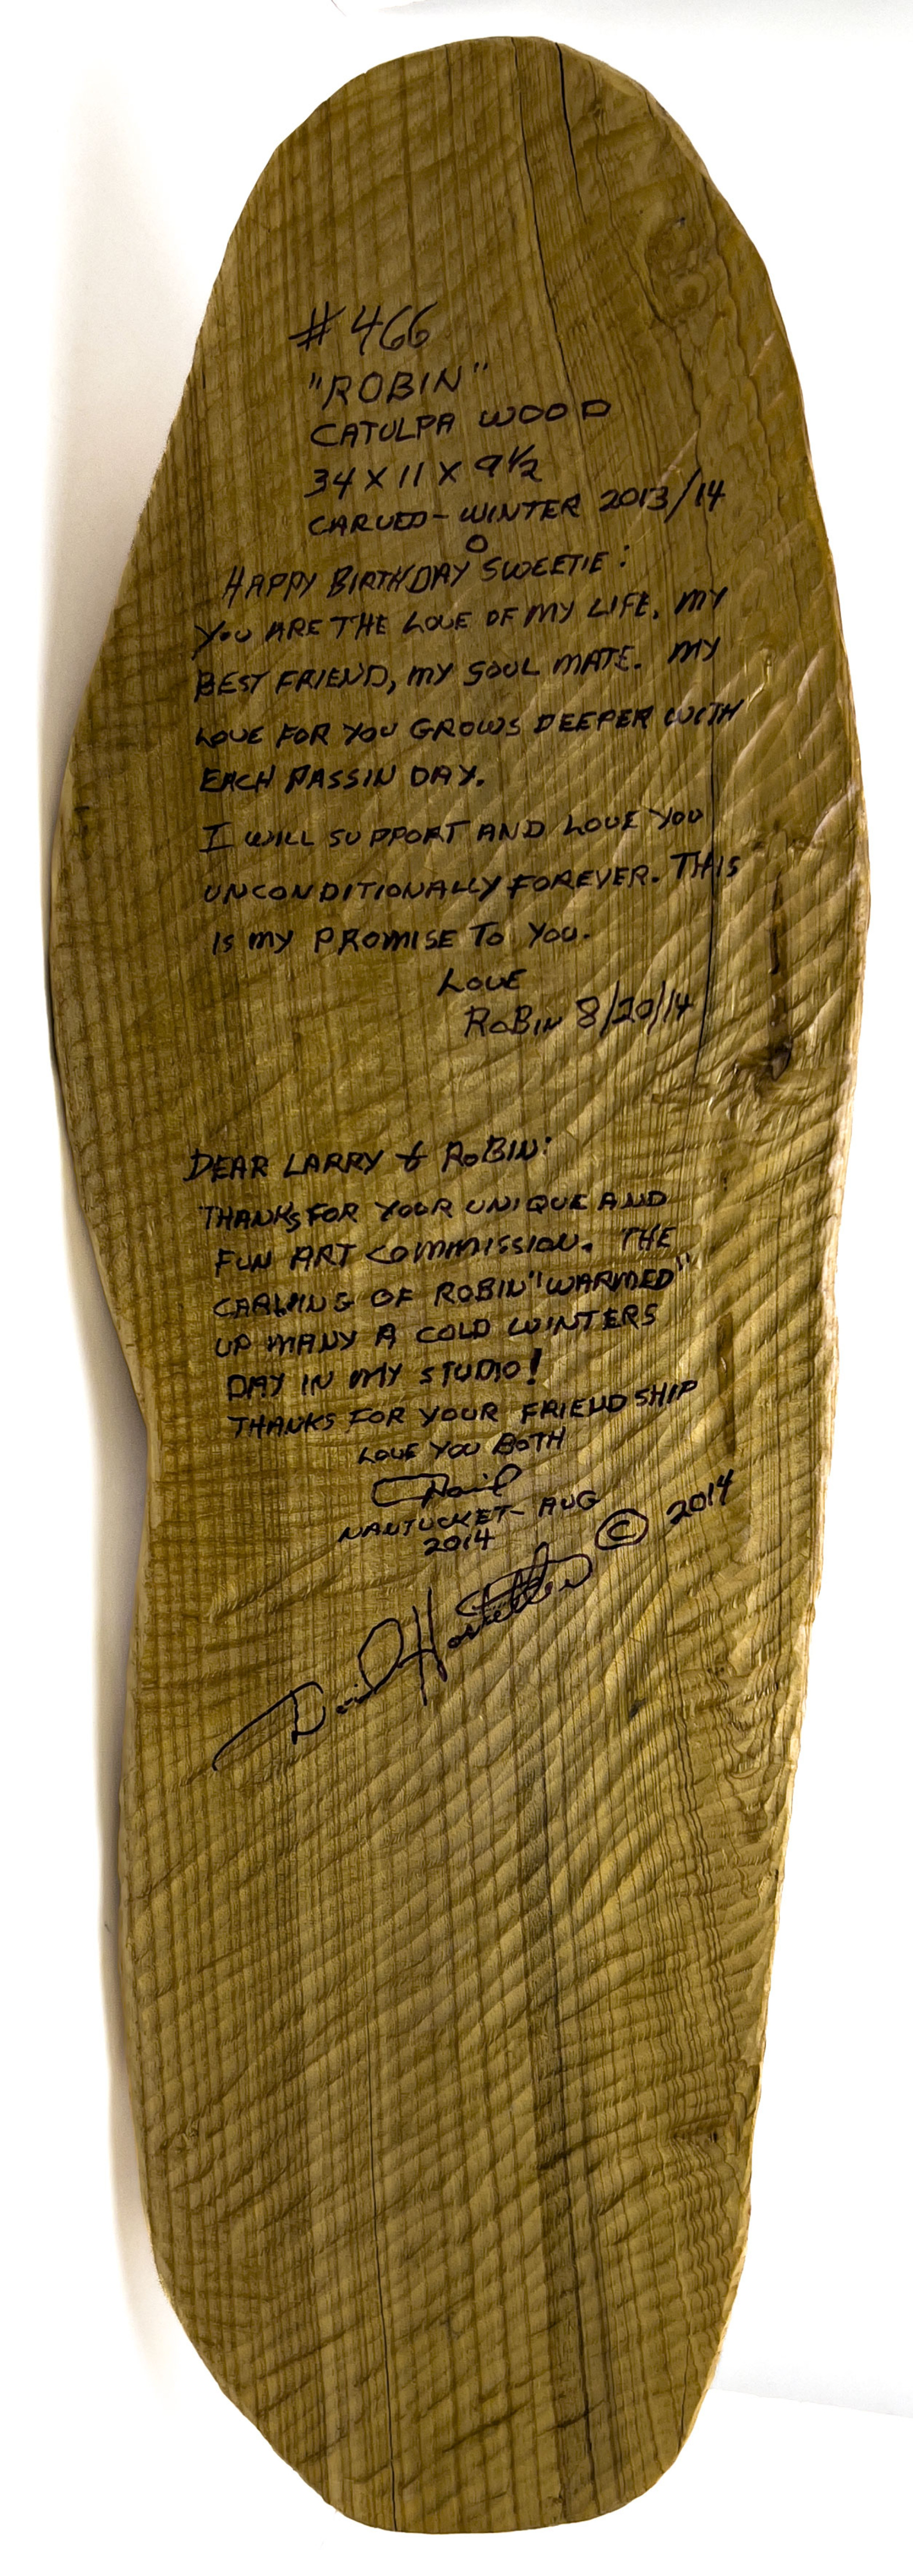 #466
"ROBIN"
CATULPA WOOD
34 X 11 X 9 1/2
CARVED - WINTER 2013/14
O
HAPPY BIRTHDAY SWEETIE:
YOU ARE THE LOVE OF MY LIFE, MY
BEST FRIEND, MY SOUL MATE. MY
LOVE FOR YOU GROWS DEEPER WITH
EACH PASSIN DAY.
I WILL SUPPORT AND LOVE YOU
UNCONDITIONALLY FOREVER. THIS
IS MY PROMISE TO YOU.
LOVE
ROBIN 8/20/14
DEAR LARRY & ROBIN:
THANKS FOR YOUR UNIQUE AND
FUN ART COMMISSION. THE
CARVING OF ROBIN "WARMED"
UP MANY A COLD WINTERS
DAY IN MY STUDIO!
THANKS FOR YOUR FRIENDSHIP
LOVE YOU BOTH
David
NANTUCKET - AUG
2014
David Hostetler © 2014